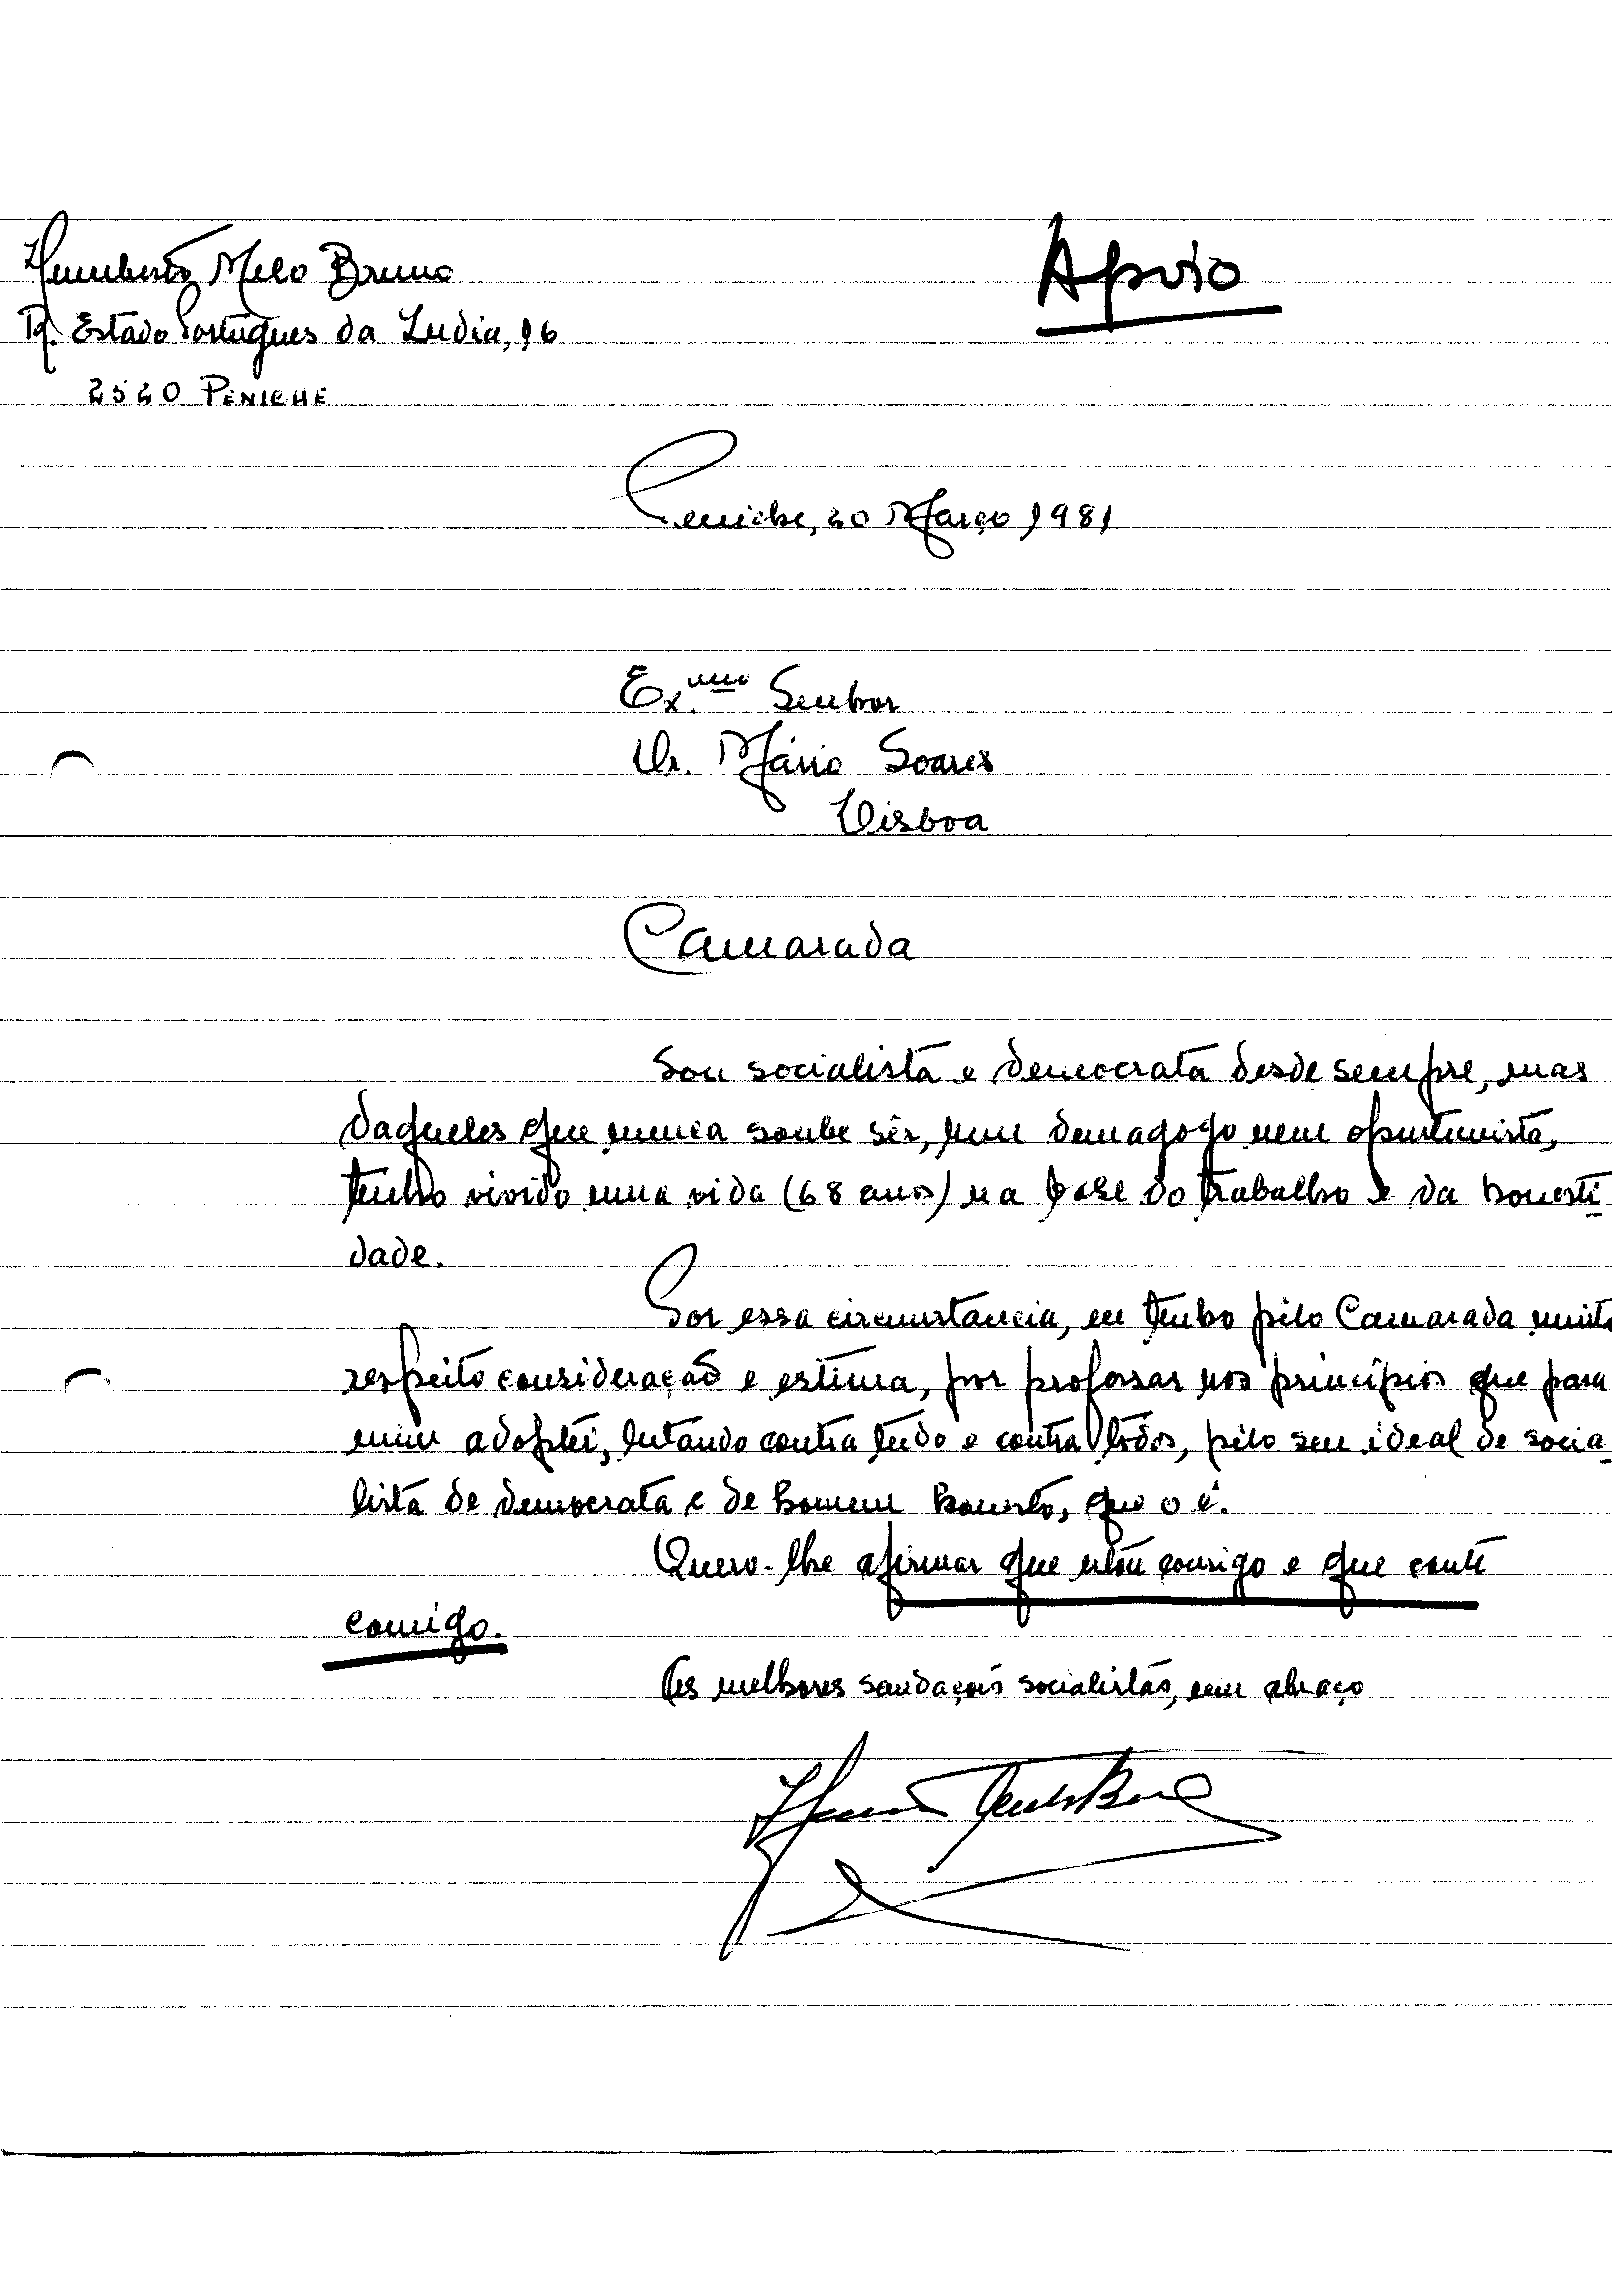 Humberto Melo Bruno
Apoio
R. Estado Português da India, 16
2520 PENICHE
Peniche, 20 Março 1981
Ex.mo Senhor
Dr. Mário Soares
Lisboa
Camarada
Sou socialista e democrata desde sempre, mas
daqueles que nunca soube sêr, nem demagogo nem oportunista,
tenho vivido uma vida (68 anos) na base do trabalho e da honesti
dade.
Por essa circunstancia, eu tenho pelo Camarada muito
respeito consideração e estima, por professar nos princípios que para
mim adoptei, lutando contra tudo e contra todos, pelo seu ideal de socia
lista de democrata e de homem honesto, que o é.
Quero-lhe afirmar que estou consigo e que conte
comigo.
As melhores saudações socialistas, num abraço